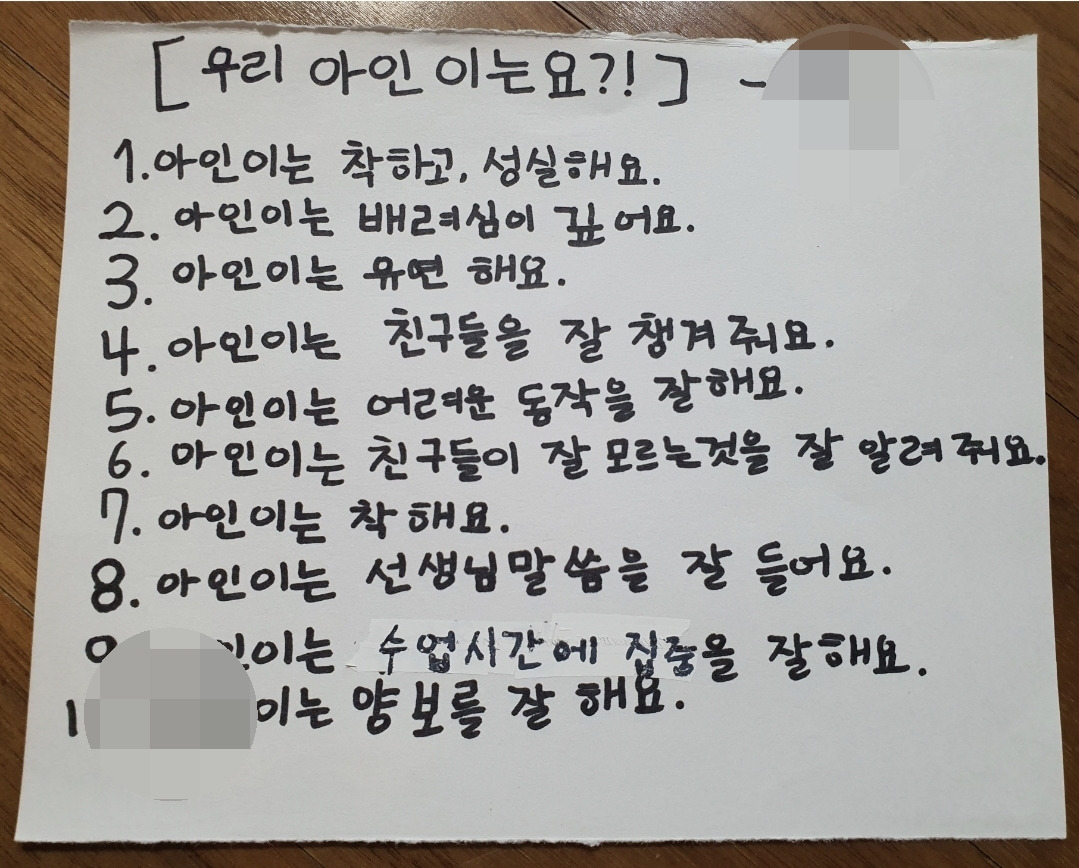 [우리 아인 이는요?!] -
1. 아인이는 착하고, 성실해요.
2. 아인이는 배려심이 깊어요.
3. 아인이는 유연 해요.
4. 아인이는 친구들을 잘 챙겨 줘요.
5. 아인이는 어려운 동작을 잘해요.
6. 아인이는 친구들이 잘 모르는것을 잘 알려 줘요.
7. 아인이는 착해요.
8. 아인이는 선생님말씀을 잘 들어요.
9 이는 수업시간에 집중을 잘해요.
1 이는 양보를 잘 해요.